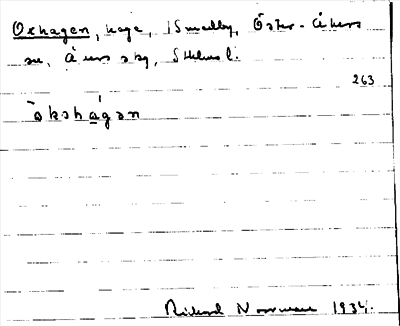 Oxhagen, hage, i Smedby, Öster-Åkers
sn, Åkers skg, Sthlms l.
263
ò̀kshágən
Rickard Norrman 1934.